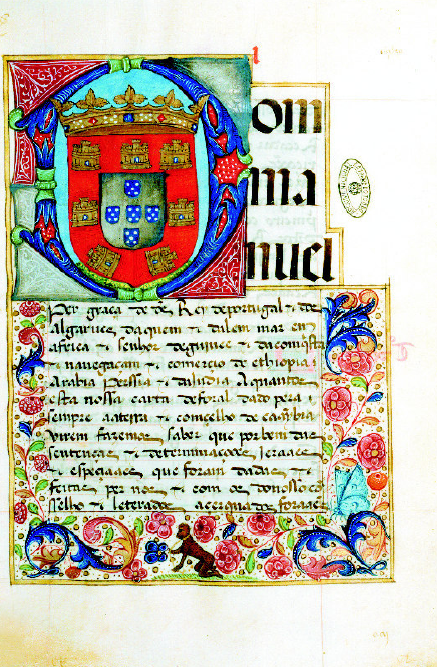 Dom
ma
nuel
Per graça de ds Rey de portugal & dos
algarues daquem & dalem mar em
africa & senhor de guinee & da comquista
& navegaçam & comercio de ethiopia
Arabia Perssia & da India A quantos
esta nossa carta de foral dado pera
sempre aa terra & comçelho de cambra
virem fazemos saber que por bem das
sentenças & determinaçooes Jeraaes
& espeçiaaes que foram dadas &
feitas per nos & com os do nosso cõ
sselho & leterados açerqua dos foraaes